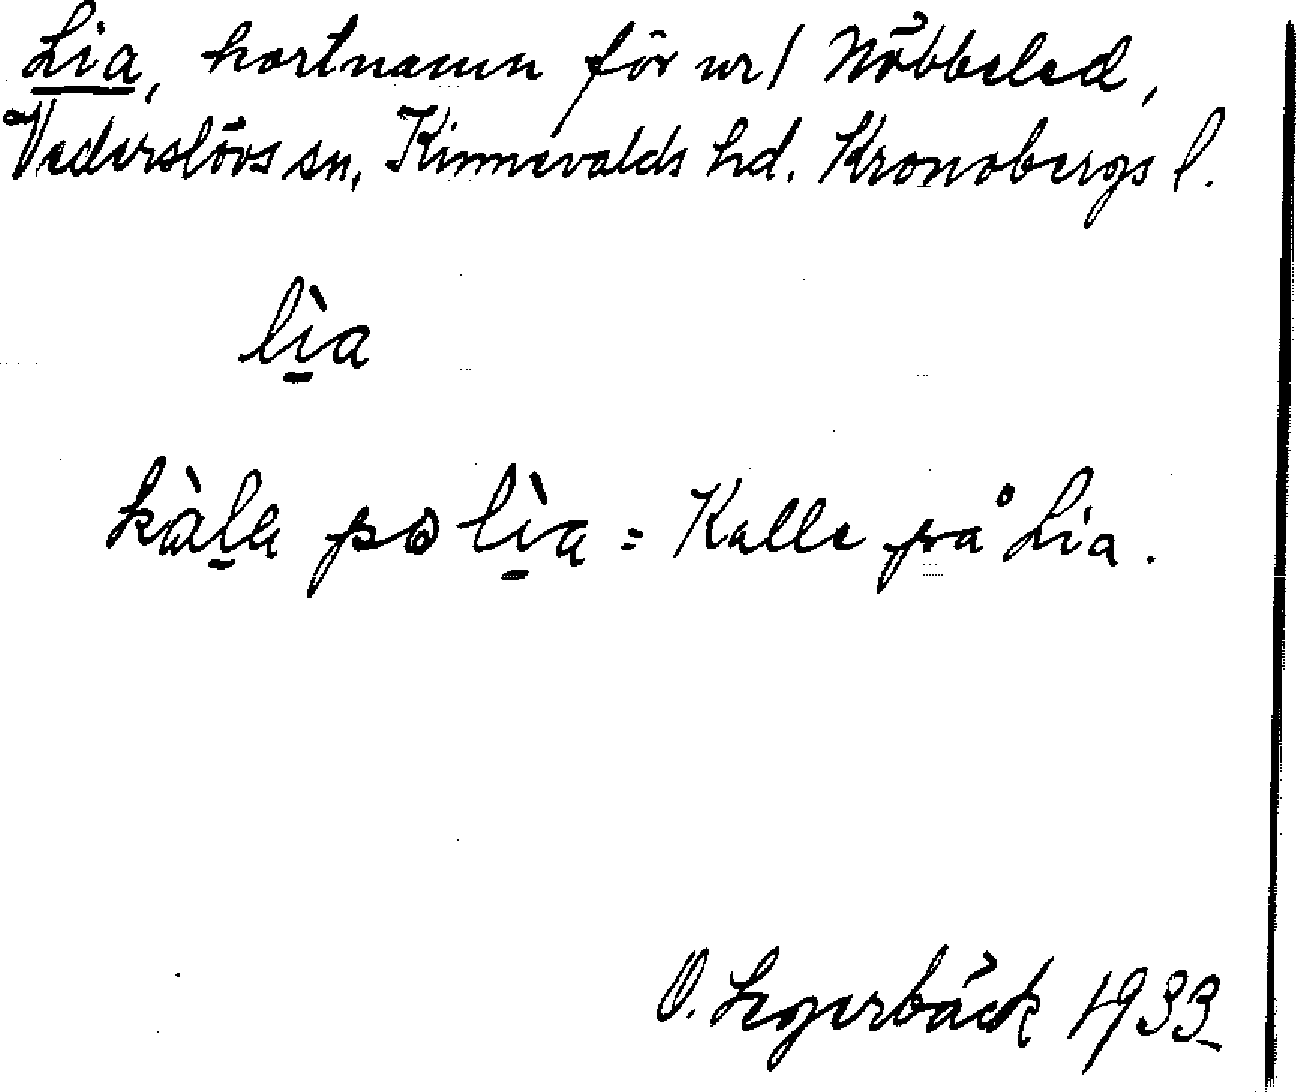 Lia, kortnamn för nr 1 Nöbbeled,
Vederslövs sn, Kinnevalds hd. Kronobergs l.
lìa
kàla po lìa = Kalle på Lia.
O. Legerbäck 1933